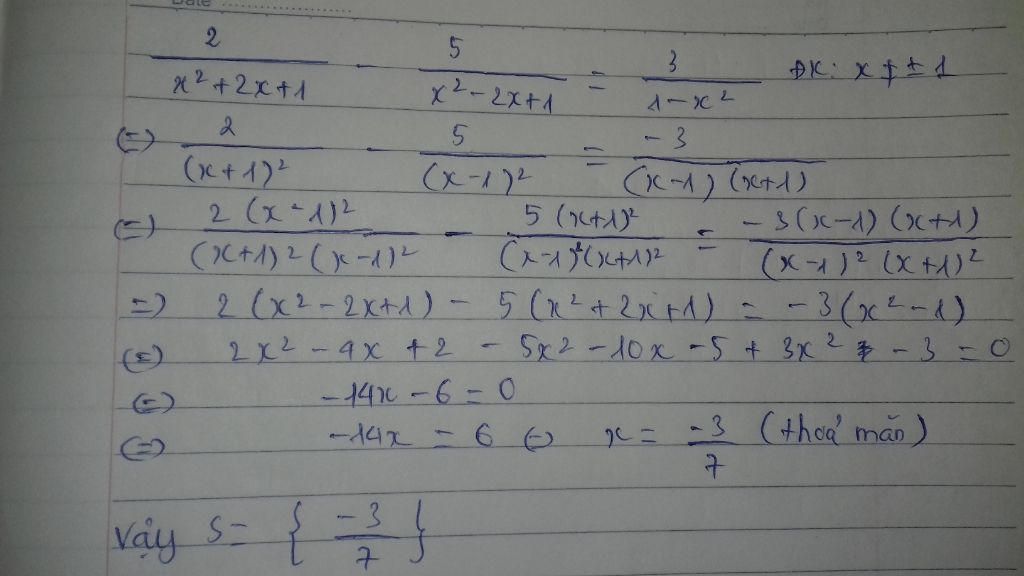 Date
2/(x² + 2x + 1) - 5/(x² - 2x + 1) = 3/(1 - x²) ĐK: x ≠ ± 1
(=) 2/(x + 1)² - 5/(x - 1)² = -3/((x - 1)(x + 1))
(=) 2(x - 1)²/((x + 1)²(x - 1)²) - 5(x + 1)²/((x - 1)²(x + 1)²) = -3(x - 1)(x + 1)/((x - 1)²(x + 1)²)
=) 2(x² - 2x + 1) - 5(x² + 2x + 1) = -3(x² - 1)
(=) 2x² - 4x + 2 - 5x² - 10x - 5 + 3x² - 3 = 0
(=) -14x - 6 = 0
(=) -14x = 6 (=) x = -3/7 (thoả mãn)
Vậy S = { -3/7 }